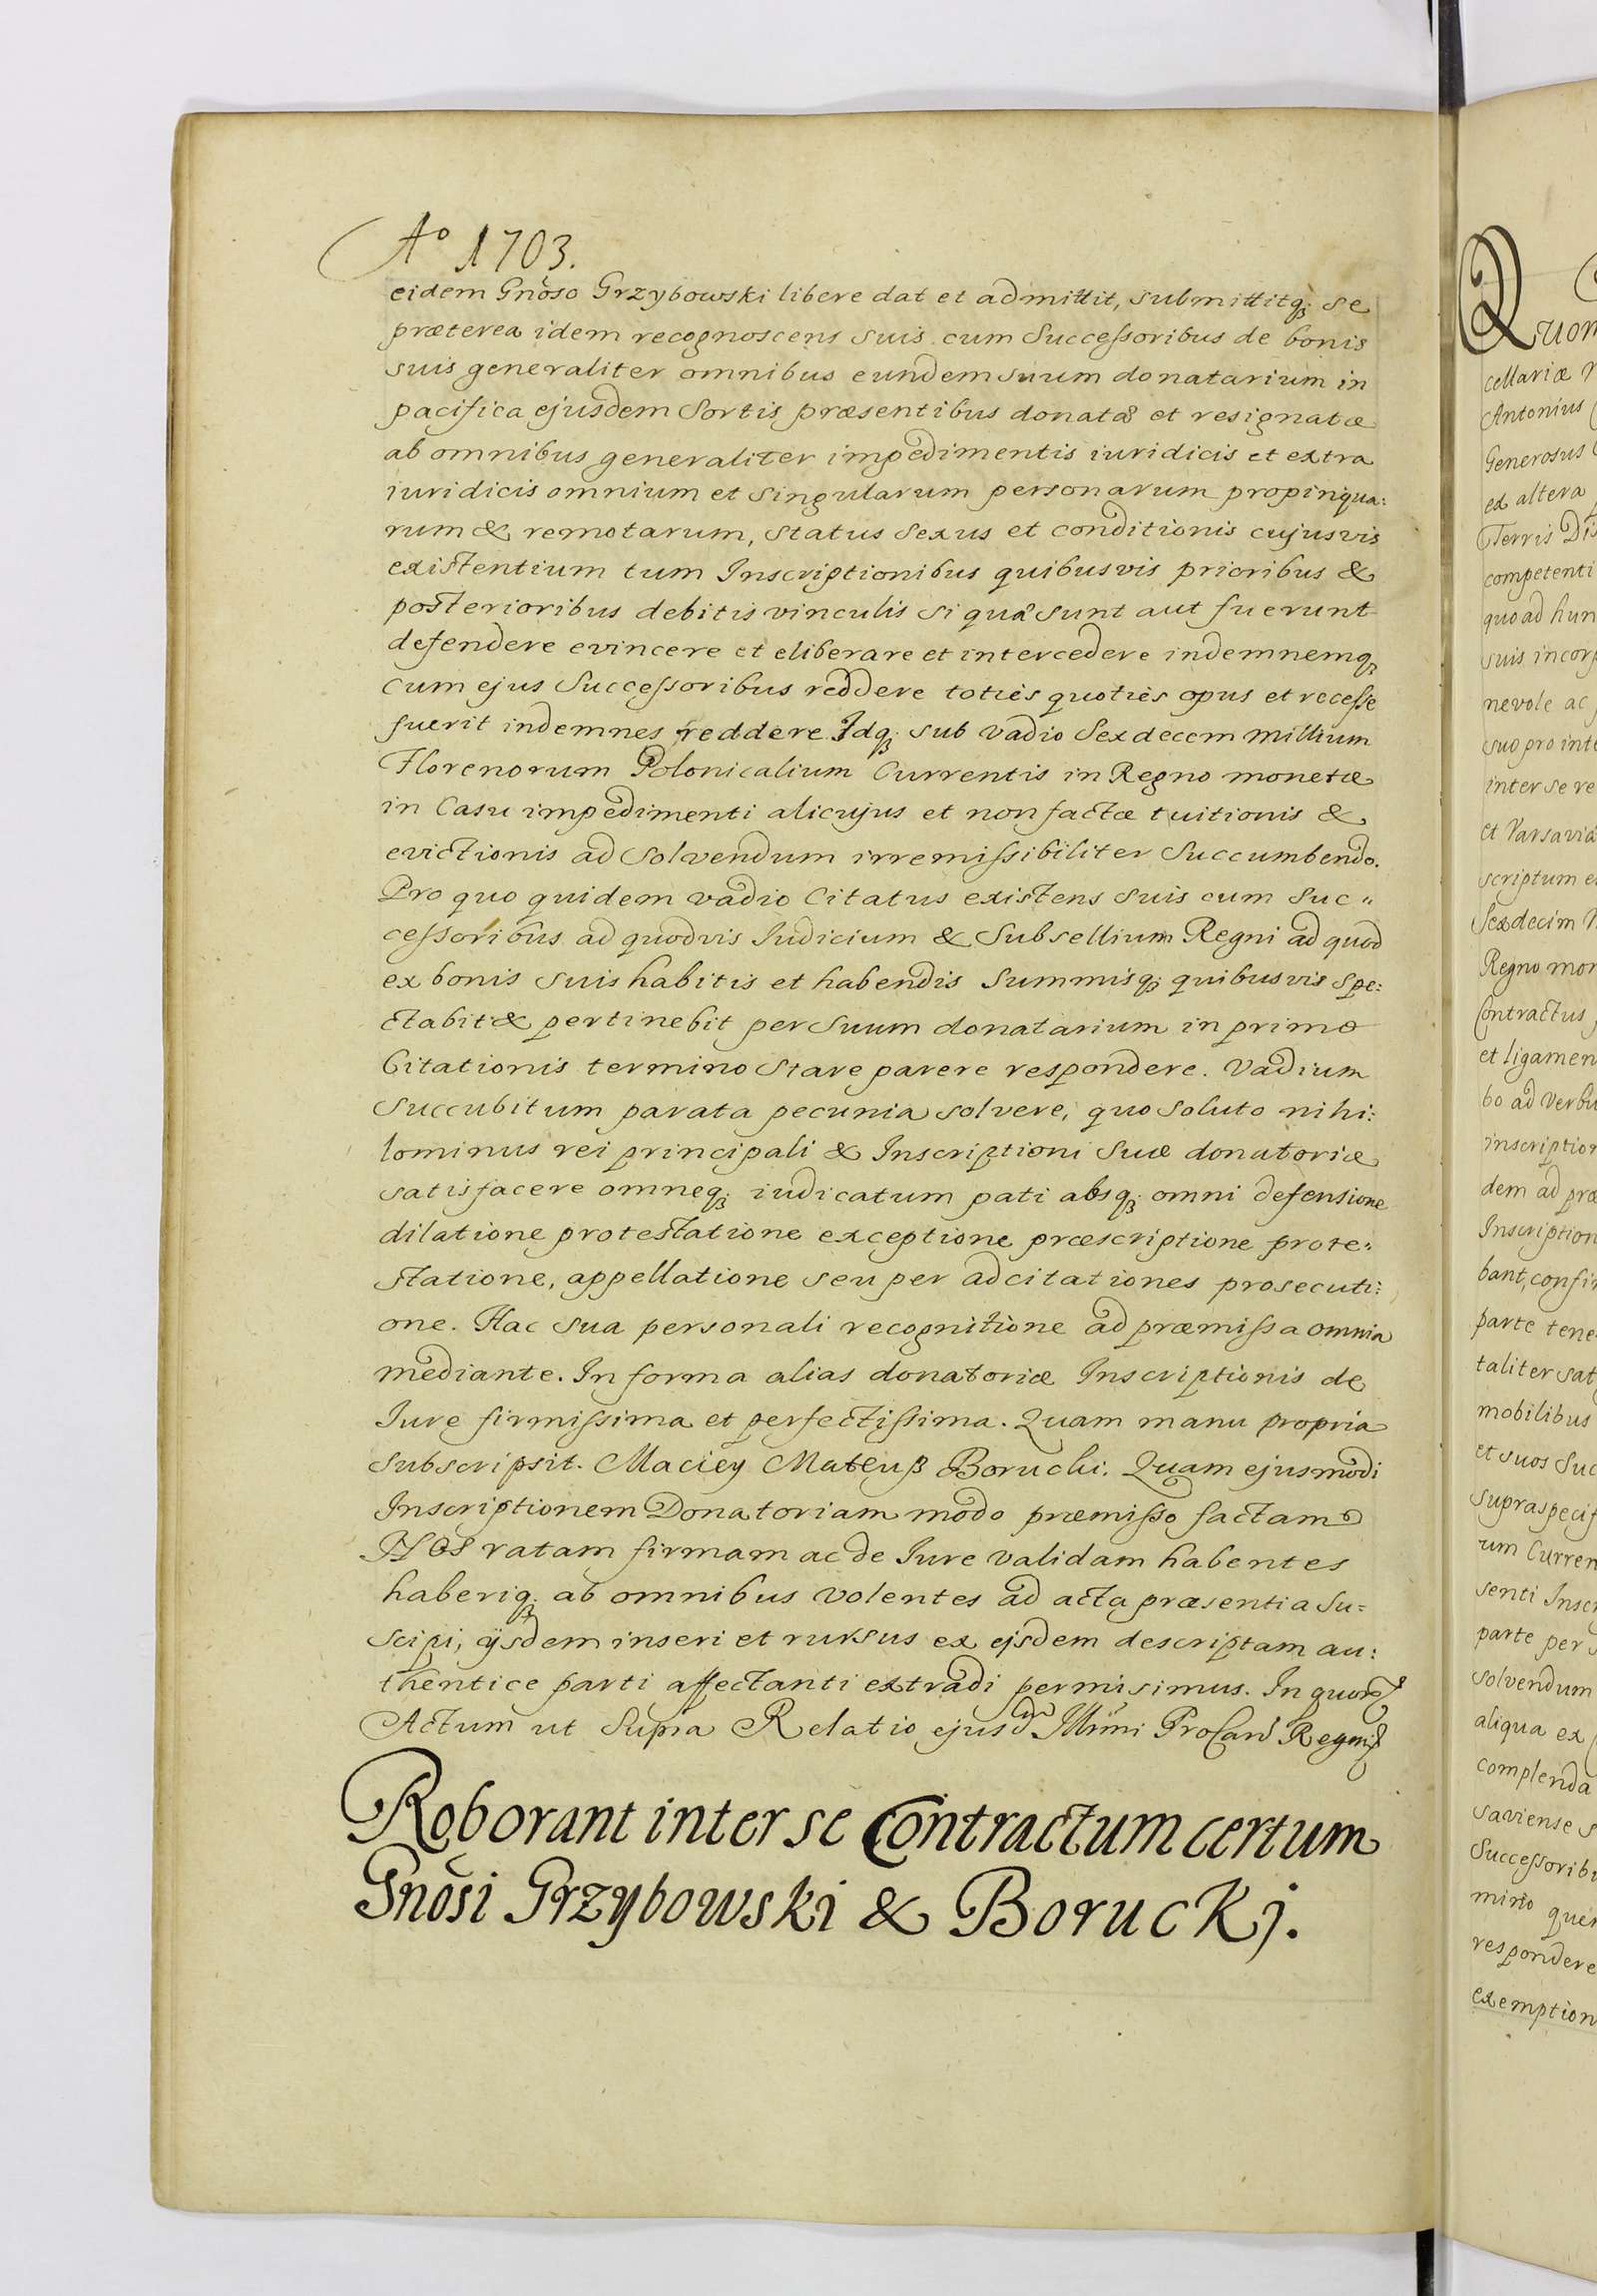 Aº 1703.
eidem Gnõso Grzybowski libere dat et admittit, submittitq; se
præterea idem recognoscens suis cum Successoribus de bonis
suis generaliter omnibus eundem suum donatarium in
pacifica ejusdem Sortis præsentibus donatæ et resignatæ
ab omnibus generaliter impedimentis iuridicis et extra
iuridicis omnium et singularum personarum propinqua:
rum & remotarum, status sexus et conditionis cujusvis
existentium tum Inscriptionibus quibusvis prioribus &
posterioribus debitis vinculis si quæ sunt aut fuerunt
defendere evincere et eliberare et intercedere indemnemq;
cum ejus Successoribus reddere toties quoties opus et recesse
fuerit indemnes reddere Idq; sub vadio Sexdecem millium
Florenorum Polonicalium Currentis in Regno monetæ
in Casu impedimenti alicujus et non factæ tuitionis &
evictionis ad solvendum irremissibiliter Succumbendo.
Pro quo quidem vadio Citatus existens suis cum Suc"
cessoribus ad quodvis Iudicium & Subsellium Regni ad quod
ex bonis suis habitis et habendis Summisq; quibusvis spe:
ctabit & pertinebit per suum donatarium in primo
Citationis termino stare parere respondere. Vadium
succubitum parata pecunia solvere, quo soluto nihi:
lominus rei principali & Inscriptioni suæ donatoriæ
satisfacere omneq; iudicatum pati absq; omni defensione
dilatione protestatione exceptione præscriptione prote:
statione, appellatione seu per adcitationes prosecuti:
one. Hac sua personali recognitione ad præmissa omnia
mediante. In forma alias donatoriæ Inscriptionis de
Iure firmissima et perfectissima. Quam manu propria
subscripsit. Maciey Mateuß Borucki. Quam ejusmodi
Inscriptionem Donatoriam modo præmisso factam
NOS ratam firmam ac de Iure validam habentes
haberiq; ab omnibus volentes ad acta præsentia su=
scipi, ijsdem inseri et rursus ex ejsdem descriptam au:
thentice parti affectanti extradi permisimus. In quor
Actum ut Supra Relatio ejusd Illmi ProCanc Regni
Roborant inter se Contractum certum
Gnõsi Grzybowski & Boruckj.
Quom
cellariæ
Antonius
Generosus
ex altera
Terris Dis
competenti
quo ad hun
suis incorp
nevole ac
suo pro inte
inter se re
et Varsaviæ
scriptum e
Sexdecim
Regno mon
Contractus
et ligamen
bo ad verbu
inscription
dem ad præ
Inscription
bant, confir
parte tene
taliter sat
mobilibus
et suos Suc
supraspecif
rum Curren
senti Inscr
parte per
solvendum
aliqua ex
complenda
saviense s
Successorib
mino quem
respondere
exemption